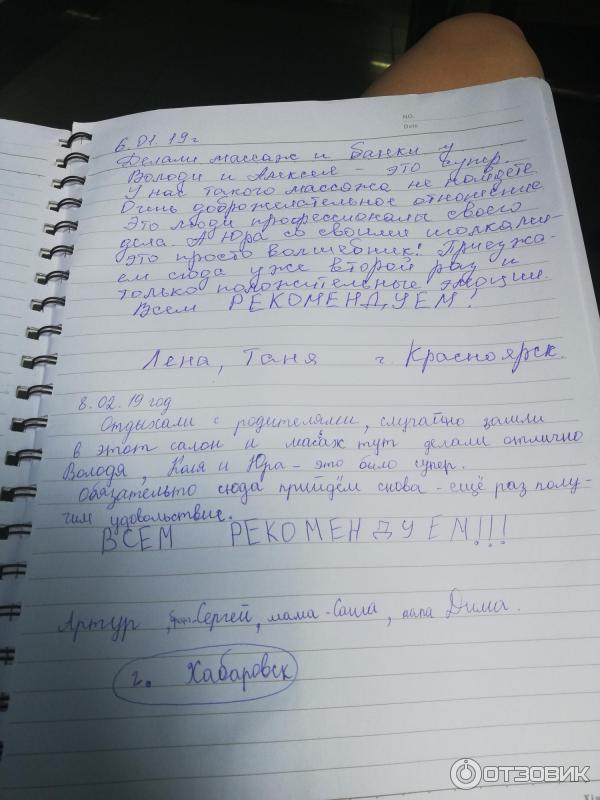 NO.
Date
6.01.19г
Делали массаж и банки у
Володи и Алексея - это супер.
У нас такого массажа не найдёте
Очень доброжелательное отношение
Это люди профессионалы своего
дела. А Юра со своими иголками
это просто волшебник! Приезжа-
ем сюда уже второй раз и
только положительные эмоции.
Всем РЕКОМЕНДУЕМ!
Лена, Таня г. Красноярск.
8.02.19 год
Отдыхали с родителями, случайно зашли
в этот салон и масаж тут делали отлично
Володя, Коля и Юра - это было супер.
Обязательно сюда прийдём снова - ещё раз полу-
чим удовольствие.
ВСЕМ РЕКОМЕНДУЕМ!!!
Артур, Сергей, мама - Саша, папа Дима.
г. Хабаровск
ОТЗОВИК